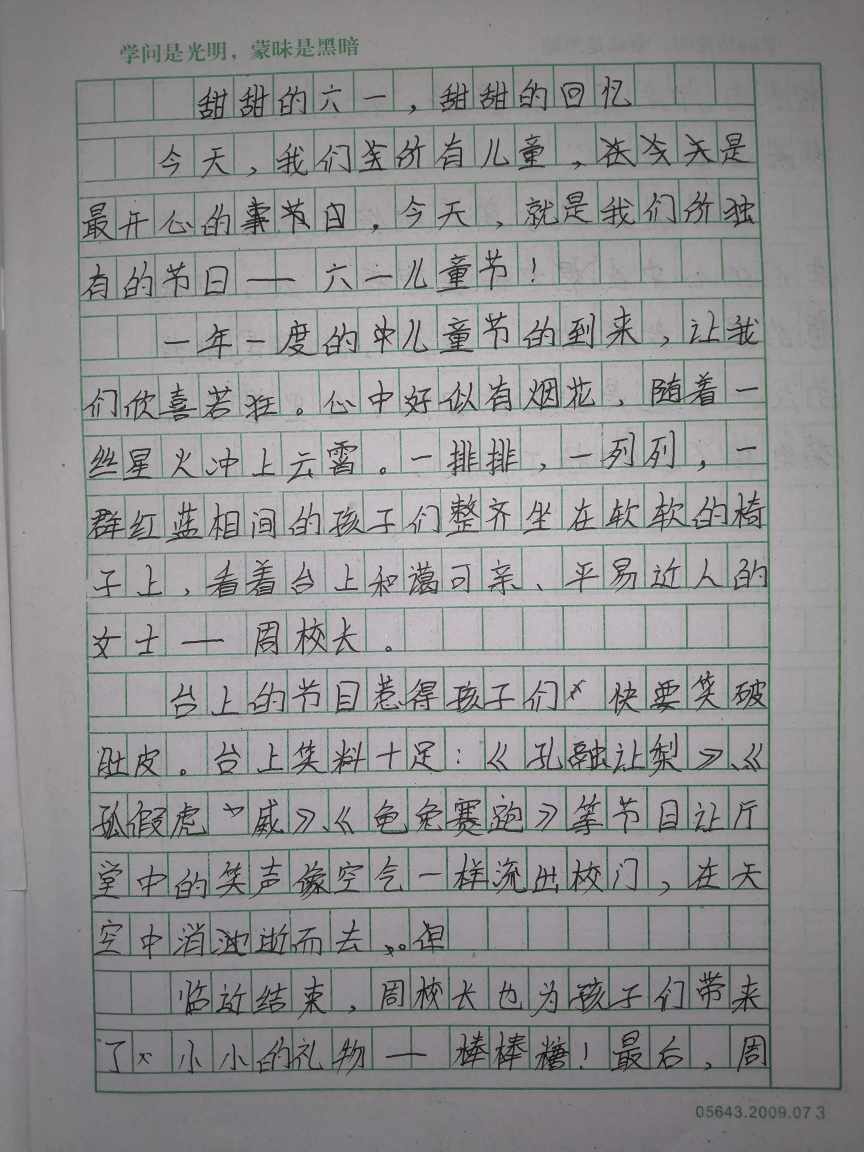 学问是光明，蒙昧是黑暗
甜甜的六一，甜甜的回忆
今天，我们所有儿童，是
最开心的节日，今天，就是我们所独
有的节日——六一儿童节！
一年一度的儿童节的到来，让我
们欣喜若狂。心中好似有烟花，随着一
丝星火冲上云霄。一排排，一列列，一
群红蓝相间的孩子们整齐坐在软软的椅
子上，看着台上和蔼可亲、平易近人的
女士——周校长。
台上的节目惹得孩子们快要笑破
肚皮。台上笑料十足：《孔融让梨》、《
狐假虎威》、《龟兔赛跑》等节目让厅
堂中的笑声像空气一样流出校门，在天
空中消逝而去。但
临近结束，周校长也为孩子们带来
了小小的礼物——棒棒糖！最后，周
05643.2009.07 3